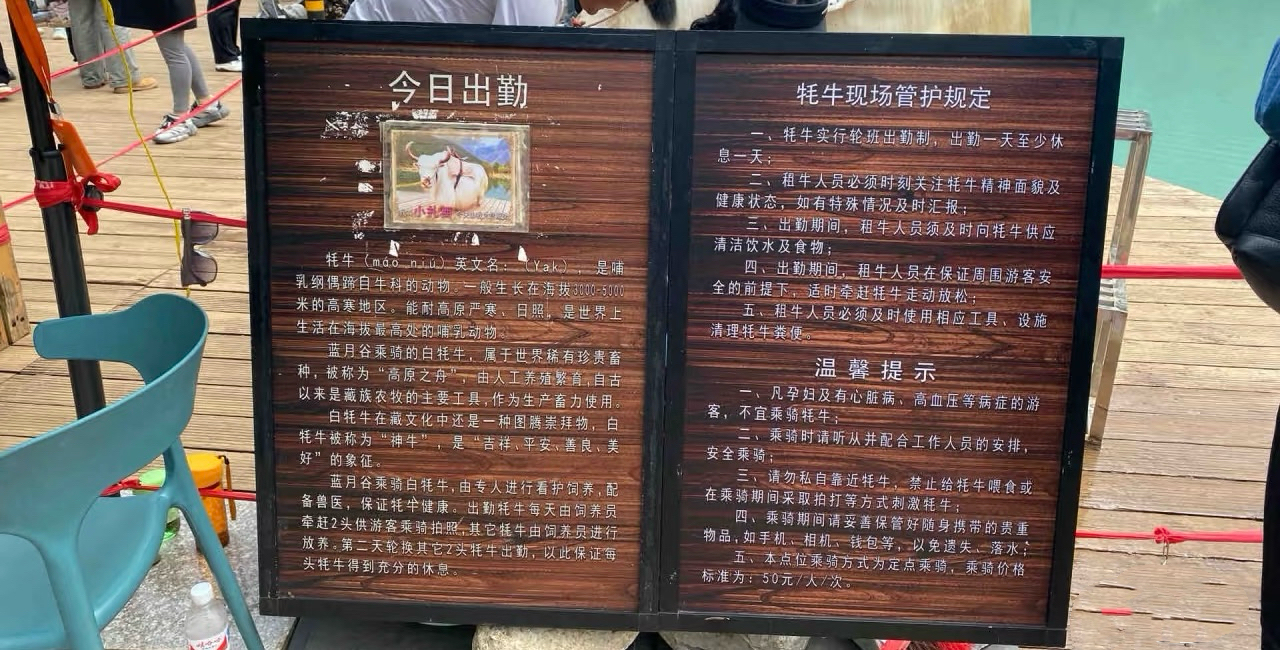 今日出勤
小乳猪
牦牛（máo niú）英文名：（Yak），是哺
乳纲偶蹄目牛科的动物。一般生长在海拔3000-5000
米的高寒地区。能耐高原严寒、日照，是世界上
生活在海拔最高处的哺乳动物。
蓝月谷乘骑的白牦牛，属于世界稀有珍贵畜
种，被称为“高原之舟”，由人工养殖繁育，自古
以来是藏族农牧的主要工具，作为生产畜力使用。
白牦牛在藏文化中还是一种图腾崇拜物，白
牦牛被称为“神牛”，是“吉祥、平安、善良、美
好”的象征。
蓝月谷乘骑白牦牛，由专人进行看护饲养，配
备兽医，保证牦牛健康。出勤牦牛每天由饲养员
牵赶2头供游客乘骑拍照，其它牦牛由饲养员进行
放养。第二天轮换其它2头牦牛出勤，以此保证每
头牦牛得到充分的休息。
牦牛现场管护规定
一、牦牛实行轮班出勤制，出勤一天至少休
息一天；
二、租牛人员必须时刻关注牦牛精神面貌及
健康状态，如有特殊情况及时汇报；
三、出勤期间，租牛人员须及时向牦牛供应
清洁饮水及食物；
四、出勤期间，租牛人员在保证周围游客安
全的前提下，适时牵赶牦牛走动放松；
五、租牛人员必须及时使用相应工具、设施
清理牦牛粪便。
温馨提示
一、凡孕妇及有心脏病、高血压等病症的游
客，不宜乘骑牦牛；
二、乘骑时请听从并配合工作人员的安排，
安全乘骑；
三、请勿私自靠近牦牛，禁止给牦牛喂食或
在乘骑期间采取拍打等方式刺激牦牛；
四、乘骑期间请妥善保管好随身携带的贵重
物品，如手机、相机、钱包等，以免遗失、落水；
五、本点位乘骑方式为定点乘骑，乘骑价格
标准为：50元/人/次。
娃哈哈